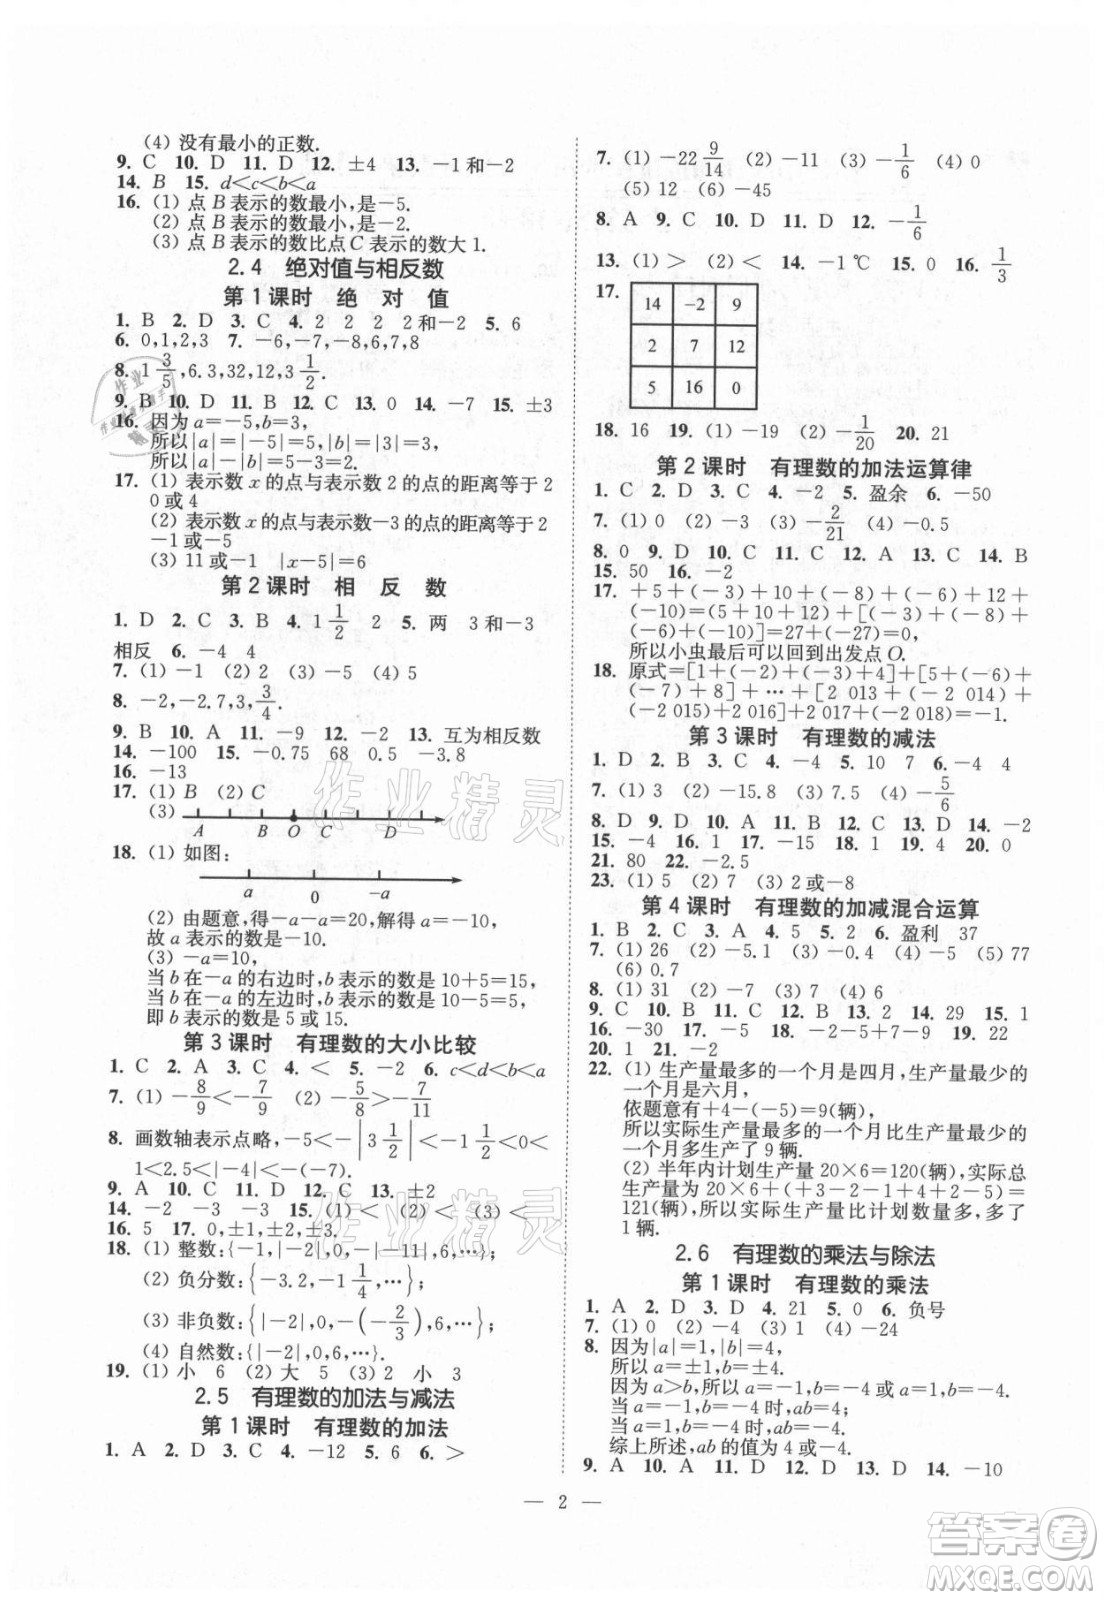 (4) 没有最小的正数.
9. C 10. D 11. D 12. ±4 13. −1和−2
14. B 15. d<c<b<a
16. (1) 点B表示的数最小,是−5.
(2) 点B表示的数最小,是−2.
(3) 点B表示的数比点C表示的数大1.
2.4 绝对值与相反数
第1课时 绝 对 值
1. B 2. D 3. C 4. 2 2 2 2和−2 5. 6
6. 0,1,2,3 7. −6,−7,−8,6,7,8
8. 1 3/5,6.3,32,12,3 1/2.
9. B 10. D 11. B 12. C 13. 0 14. −7 15. ±3
16. 因为a=−5,b=3,
所以|a|=|−5|=5,|b|=|3|=3,
所以|a|−|b|=5−3=2.
17. (1) 表示数x的点与表示数2的点的距离等于2
0或4
(2) 表示数x的点与表示数−3的点的距离等于2
−1或−5
(3) 11或−1 |x−5|=6
第2课时 相 反 数
1. D 2. C 3. B 4. 1 1/2 2 5. 两 3和−3
相反 6. −4 4
7. (1) −1 (2) 2 (3) −5 (4) 5
8. −2,−2.7,3,3/4.
9. B 10. A 11. −9 12. −2 13. 互为相反数
14. −100 15. −0.75 68 0.5 −3.8
16. −13
17. (1) B (2) C
(3)
A B O C D
18. (1) 如图:
a 0 −a
(2) 由题意,得−a−a=20,解得a=−10,
故a表示的数是−10.
(3) −a=10,
当b在−a的右边时,b表示的数是10+5=15,
当b在−a的左边时,b表示的数是10−5=5,
即b表示的数是5或15.
第3课时 有理数的大小比较
1. C 2. A 3. C 4. < 5. −2 6. c<d<b<a
7. (1) −8/9<−7/9 (2) −5/8>−7/11
8. 画数轴表示点略,−5<−|3 1/2|<−1 1/2<0<
1<2.5<|−4|.
9. A 10. C 11. B 12. C 13. ±2
14. −2 −3 −3 15. (1)< (2)< (3)<
16. 5 17. 0,±1,±2,±3
18. (1) 整数:{−1,|−2|,0,−|−11|,6,⋯};
(2) 负分数:{−3.2,−1 1/4,⋯};
(3) 非负数:{|−2|,0,−(−2/3),6,⋯};
(4) 自然数:{|−2|,0,6,⋯}.
19. (1) 小 6 (2) 大 5 (3) 2 小 3
2.5 有理数的加法与减法
第1课时 有理数的加法
1. A 2. D 3. C 4. −12 5. 6 6. >
7. (1) −22 9/14 (2) −11 (3) −1/6 (4) 0
(5) 12 (6) −45
8. A 9. C 10. D 11. D 12. −1/6
13. (1) > (2) < 14. −1℃ 15. 0 16. 1/3
17.
14 −2 9
2 7 12
5 16 0
18. 16 19. (1) −19 (2) −1/20 20. 21
第2课时 有理数的加法运算律
1. C 2. D 3. C 4. −2 5. 盈余 6. −50
7. (1) 0 (2) −3 (3) −2/21 (4) −0.5
8. 0 9. D 10. C 11. D 12. A 13. C 14. B
15. 50 16. −2
17. +5+(−3)+10+(−8)+(−6)+12+
(−10)=(5+10+12)+[(−3)+(−8)+
(−6)+(−10)]=27+(−27)=0,
所以小虫最后可以回到出发点O.
18. 原式=[1+(−2)+(−3)+4]+[5+(−6)+
(−7)+8]+⋯+[2 013+(−2 014)+
(−2 015)+2 016]+2 017+(−2 018)=−1.
第3课时 有理数的减法
1. D 2. B 3. C 4. −4 5. 10 7 6. −4
7. (1) 3 (2) −15.8 (3) 7.5 (4) −5/6
8. D 9. D 10. A 11. B 12. A 13. D 14. −2
15. −4 16. 1 17. −15 18. 1 19. 4 20. 0
21. 80 22. −2.5
23. (1) 5 (2) 7 (3) 2或−8
第4课时 有理数的加减混合运算
1. B 2. C 3. A 4. 5 5. 2 6. 盈利 37
7. (1) 26 (2) −5.1 (3) −0.4 (4) −3 (5) 77
(6) 0.7
8. (1) 31 (2) −7 (3) 7 (4) 6
9. C 10. B 11. C 12. B 13. 2 14. 29 15. 1
16. −30 17. −5 18. −2−5+7−9 19. 22
20. 1 21. −2
22. (1) 生产量最多的一个月是四月,生产量最少的
一个月是六月,
依题意有+4−(−5)=9(辆),
所以实际生产量最多的一个月比生产量最少的
一个月多生产了9辆.
(2) 半年内计划生产量20×6=120(辆),实际总
生产量为20×6+3−2−1+4+2−5=
121(辆),所以实际生产量比计划数量多,多了
1辆.
2.6 有理数的乘法与除法
第1课时 有理数的乘法
1. A 2. D 3. D 4. 21 5. 0 6. 负号
7. (1) 0 (2) −4 (3) 1 (4) −24
8. 因为|a|=1,|b|=4,
所以a=±1,b=±4.
因为a>b,所以a=±1,b=−4.
当a=1,b=−4时,ab=−4;
当a=−1,b=−4时,ab=4.
综上所述,ab的值为4或−4.
9. A 10. A 11. A 12. D 13. D 14. −10
— 2 —
作业精灵
作业精灵
答案卷
MXQE.COM